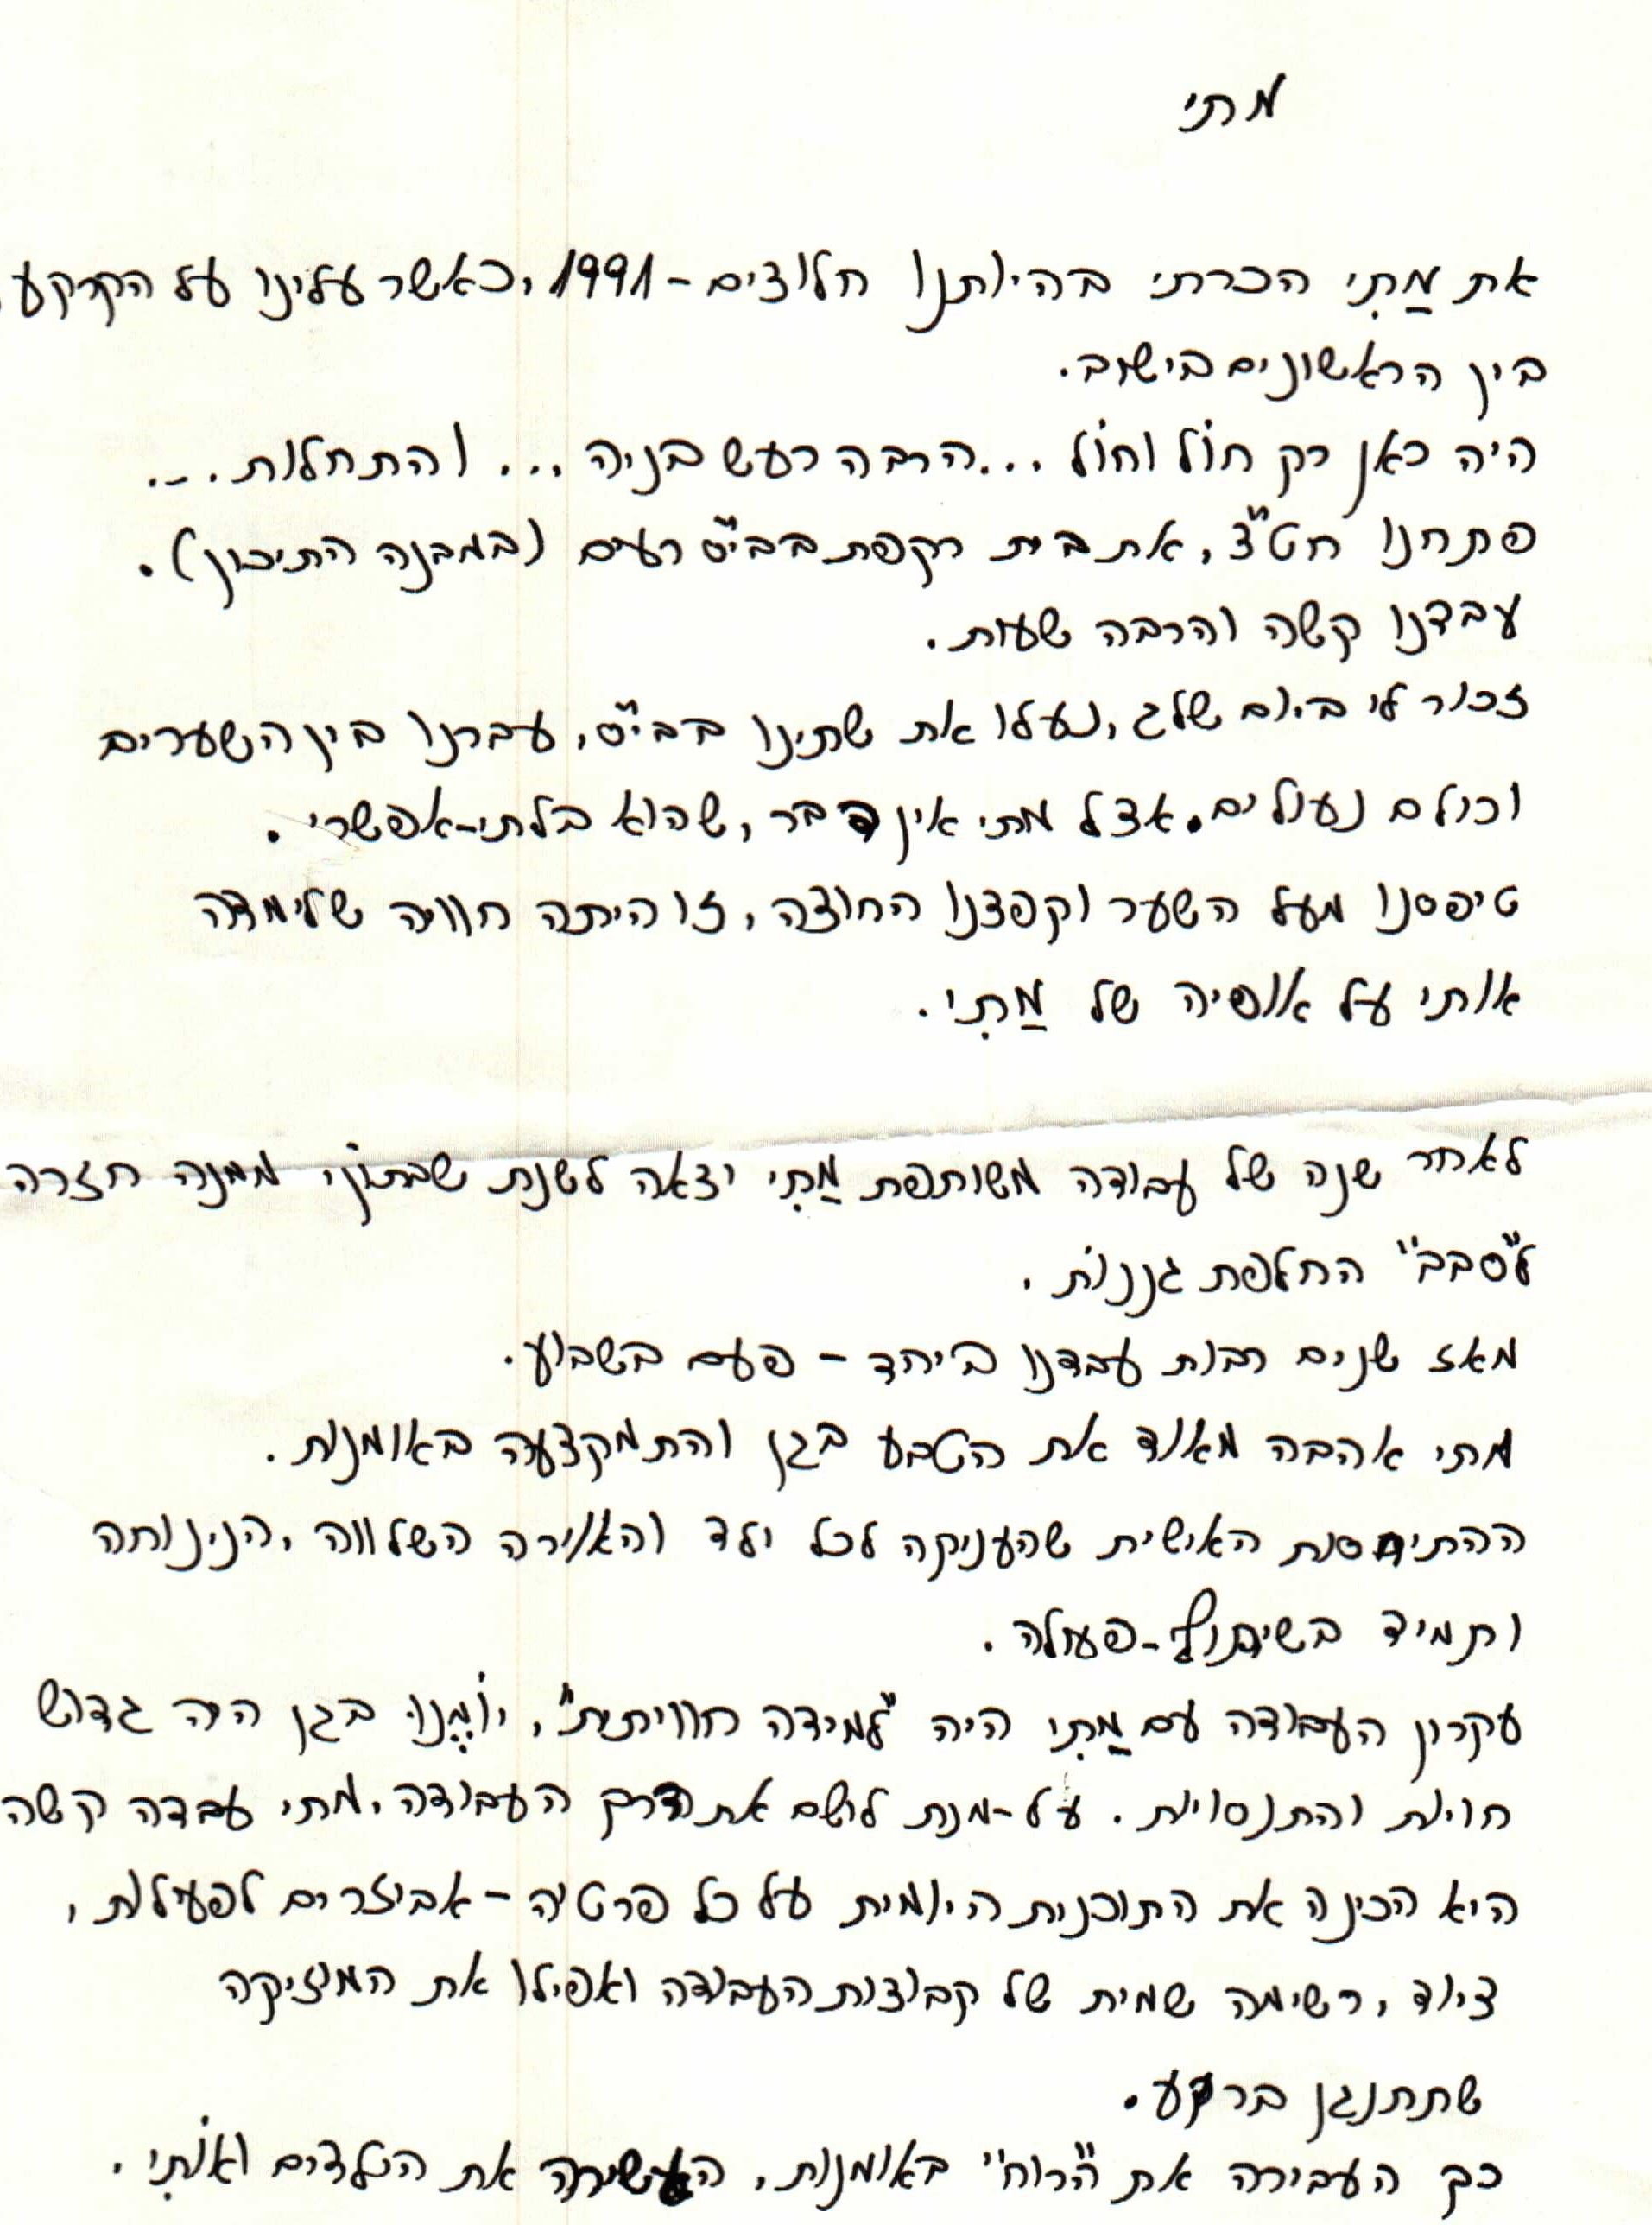 מתי
את מַתִי הכרתי בהיותנו חלוצים - 1991, כאשר עלינו על הקרקע,
בין הראשונים בישוב.
היה כאן רק חוֹל וחוֹל ... הרבה רעש בניה ... והתחלות ...
פתחנו חט"צ, את בית רקפת בבי"ס רעים (במבנה התיכון).
עבדנו קשה והרבה שעות.
זכור לי ביום שלג, נעלו את שתינו בבי"ס, עברנו בין השערים
וכולם נעולים. אצל מתי אין דבר, שהוא בלתי-אפשרי.
טיפסנו מעל השער וקפצנו החוצה, זו היתה חוויה שלימדה
אותי על אופיה של מַתִי.
לאחר שנה של עבודה משותפת מַתִי יצאה לשנת שבתון, ממנה חזרה
ל"סבב" החלפת גננות.
מאז שנים רבות עבדנו ביחד - פעם בשבוע.
מתי אהבה מאוד את הטבע בגן והתמקצעה באומנות.
ההתיחסות האישית שהעניקה לכל ילד והאוירה השלווה, הנינוחה
ותמיד בשיתוף-פעולה.
עקרון העבודה עם מַתִי היה "למידה חווייתית", יוֹמֶנוּ בגן היה גדוש
חויות והתנסויות. על-מנת ליישם את דרך העבודה, מתי עבדה קשה
היא הכינה את התוכנית היומית על כל פרטיה - אביזרים לפעילות,
ציוד, רשימה שמית של קבוצות העבודה ואפילו את המוזיקה
שתתנגן ברקע.
כך העבירה את "הרוח" באומנות, העשירה את הילדים ואוֹתִי.